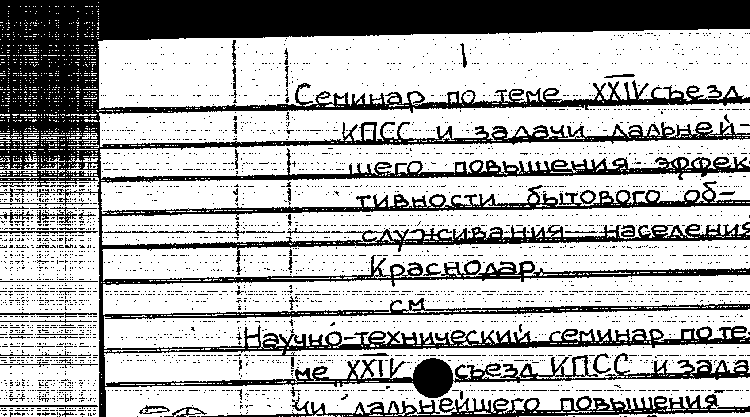 Семинар по теме „XXIV съезд
КПСС и задачи дальней-
шего повышения эффек
тивности бытового об-
служивания населения
Краснодар.
см
Научно-технический семинар по те-
ме „XXIV съезд КПСС и зада
чи дальнейшего повышения